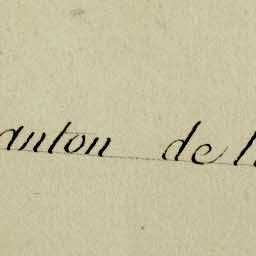 anton de l